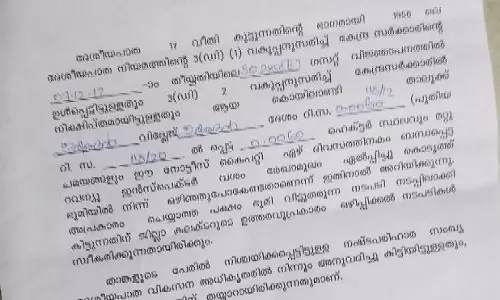 ദേശീയപാത 17 വീതി കൂട്ടുന്നതിന്റെ ഭാഗമായി 1956 ലെ
ദേശീയപാത നിയമത്തിന്റെ 3(ഡി) (1) വകുപ്പനുസരിച്ച് കേന്ദ്ര സർക്കാരിന്റെ
-ാം തീയ്യതിയിലെ ഗസറ്റ് വിജ്ഞാപനത്തിൽ
ഉൾപ്പെട്ടിട്ടുള്ളതും 3(ഡി) 2 വകുപ്പനുസരിച്ച് കേന്ദ്രസർക്കാരിൽ
നിക്ഷിപ്തമായിട്ടുള്ളതും ആയ കൊയിലാണ്ടി താലൂക്ക്
വില്ലേജ് ദേശം റി.സ. 116/12 (പുതിയ
റി സ. 116/20 ൽ പെട്ട 0.0060 ഹെക്ടർ സ്ഥലവും മറ്റു
ചമയങ്ങളും ഈ നോട്ടീസ് കൈപറ്റി ഏഴ് ദിവസത്തിനകം ബന്ധപ്പെട്ട
റവന്യൂ ഇൻസ്പെക്ടർ വശം രേഖാമൂലം ഏൽപ്പിച്ചു കൊടുത്ത്
ഭൂമിയിൽ നിന്ന് ഒഴിഞ്ഞുപോകേണ്ടതാണെന്ന് ഇതിനാൽ അറിയിക്കുന്നു.
അപ്രകാരം ചെയ്യാത്ത പക്ഷം ഭൂമി വിട്ടുതരുന്ന നടപടി നടപ്പിലാക്കി
കിട്ടുന്നതിന് ജില്ലാ കലക്ടറുടെ ഉത്തരവുപ്രകാരം ഒഴിപ്പിക്കൽ നടപടികൾ
സ്വീകരിക്കുന്നതായിരിക്കും.
താങ്കളുടെ പേരിൽ നിശ്ചയിക്കപ്പെട്ടിട്ടുള്ള നഷ്ടപരിഹാര സംഖ്യ
ദേശീയപാത വികസന അധികൃതരിൽ നിന്നും അനുവദിച്ചു കിട്ടിയിട്ടുള്ളതും,
തയ്യാറായിരിക്കുന്നതുമാണ്.